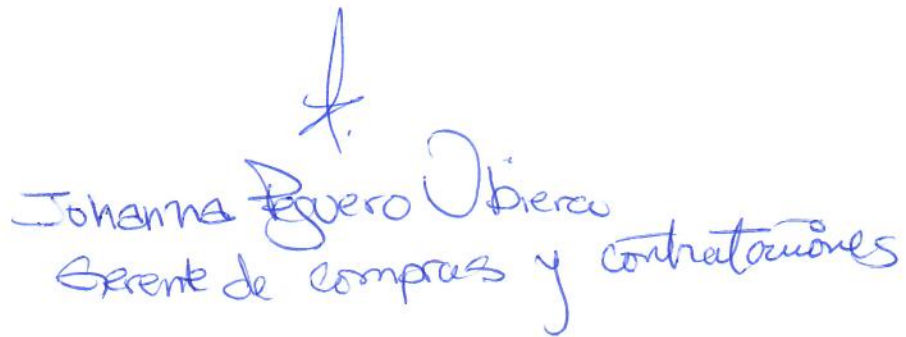 Johanna Peguero Ubiera
Gerente de compras y contrataciones